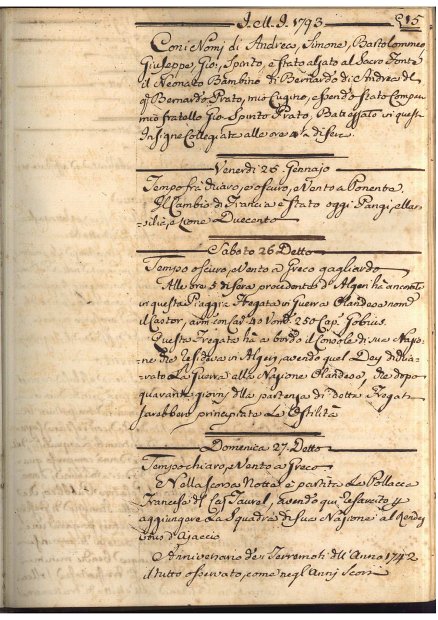 J.M.J. 1793
15
Coni Nomj di Andrea, Simone, Bartolommeo,
Giuseppe, Gio: Spirito, è stato alzato al Sacro Fonte
il Neonato Bambino di Bernardo di Andrea del
qm Bernardo Prato, mio Cugino, essendo stato Compe
mio fratello Gio Spirito Prato, Battezzato in questa
Insigne Collegiata alle ore 4 di sera.
Venerdi 25 Gennajo
Tempo frà chiaro, e oscuro, e Vento a Ponente.
Il Cambio di Francia è stato oggi Parigi, e Mar-
silia, e Duecento
Sabato 26 Detto
Tempo oscuro, e Vento a Greco gagliardo
Alle ore 5 di sera procedente d'Algeri hà ancorato
in questa Piaggia Fregata in Guerra Olandese nomta
il Castor, arm. con Can. 40 Uom. 250 Cap.
Questa Fregata ha a bordo il Console di sua Nazio-
ne che resideva in Algeri, avendo quel Dey dichia-
rato La Guerra alla Nazione Olandese, che dopo
quaranta giorni della partenza di detta Fregata
sarebbero principiate Le Ostilità
Domenica 27. Detto
Tempo chiaro, e Vento a Greco
Nella scorsa Notte è partita La Pollacca
Francese di Cap Taurel, avendo qui
aggiungere La Squadra di sua Nazione al Rendez
Vous d'Ajaccio
Anniversario de' Terremoti dell'Anno 1742
il tutto osservato, come negl'Annj Scorsi